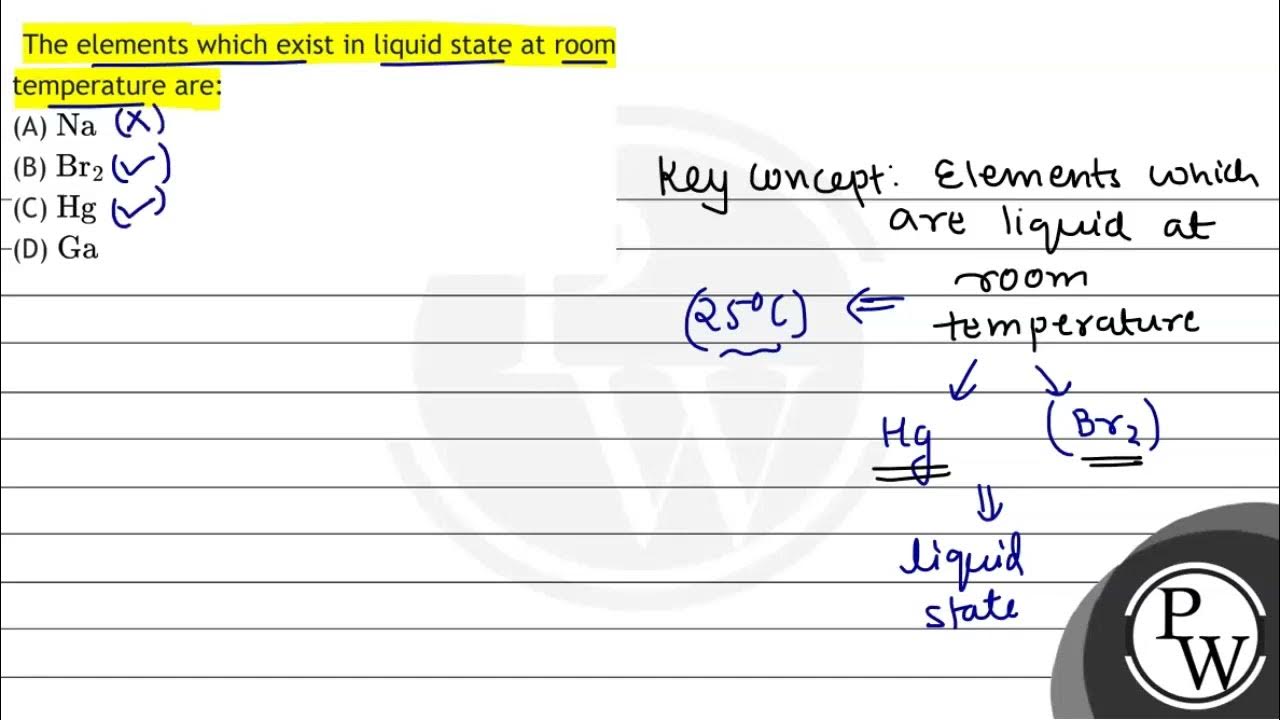 The elements which exist in liquid state at room
temperature are:
(A) Na (X)
(B) Br₂ (✓)
(C) Hg (✓)
(D) Ga
Key concept: Elements which
are liquid at
room
(25°C) ⇐ temperature
↙ ↘
Hg (Br₂)
⇓
liquid
state
PW
PW